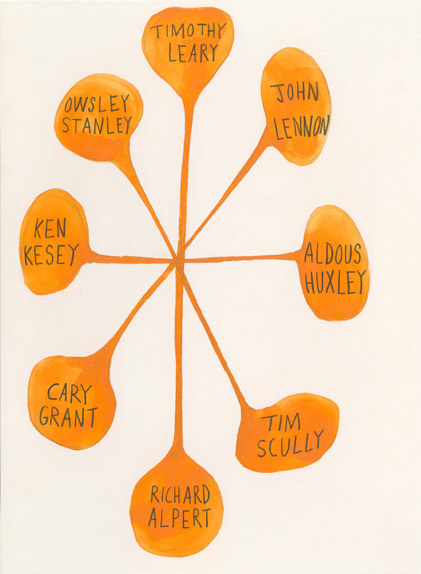 TIMOTHY
LEARY
JOHN
LENNON
OWSLEY
STANLEY
KEN
KESEY
ALDOUS
HUXLEY
CARY
GRANT
TIM
SCULLY
RICHARD
ALPERT